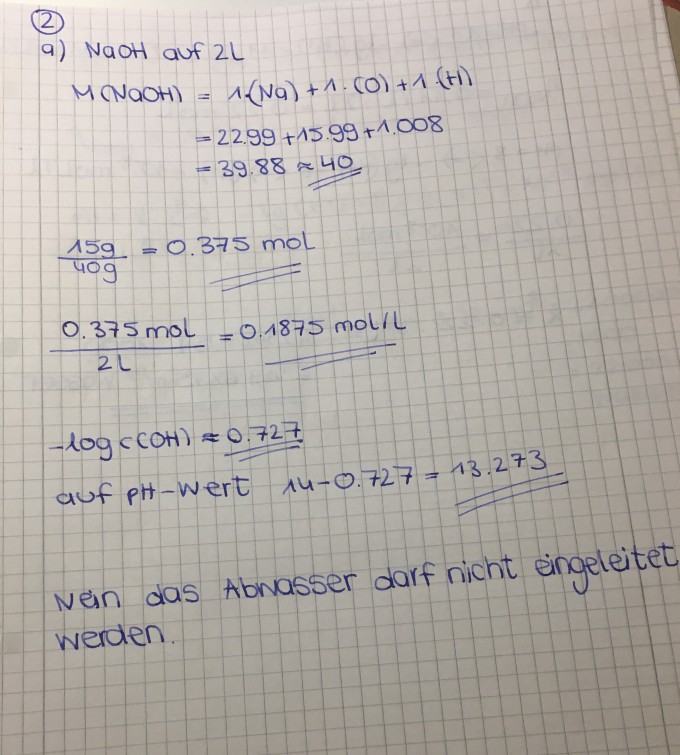 2
a) NaOH auf 2L
M(NaOH) = 1·(Na) + 1·(O) + 1·(H)
= 22.99 + 15.99 + 1.008
= 39.88 ≈ 40
15g
40g
= 0.375 mol
0.375 mol
2L
= 0.1875 mol/L
-log c(OH) ≈ 0.727
auf pH-Wert 14 - 0.727 = 13.273
Nein das Abwasser darf nicht eingeleitet
werden.